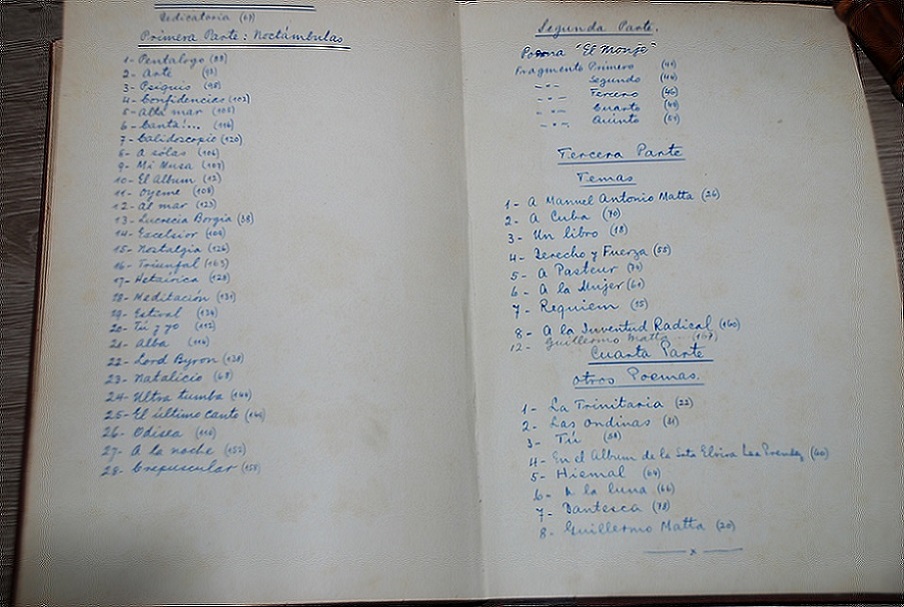 Dedicatoria (67)
Primera Parte: Noctámbulas
1- Pentalogo (88)
2- Arte (93)
3- Psiquis (98)
4- Confidencias (102)
5- Alta mar (105)
6- Canta!... (116)
7- Calidoscopio (120)
8- A sólas (106)
9- Mi Musa (107)
10- El Album (12)
11- Oyeme (108)
12- Al mar (123)
13- Lucrecia Borgia (38)
14- Excelsior (109)
15- Nostalgia (126)
16- Triunfal (163)
17- Hetaírica (128)
18- Meditación (131)
19- Estival (134)
20- Tú y yo (112)
21- Alba (114)
22- Lord Byron (138)
23- Natalicio (68)
24- Ultra tumba (144)
25- El último canto (146)
26- Odisea (110)
27- A la noche (152)
28- Crepuscular (158)
Segunda Parte.
Poema "El Monje"
Fragmento Primero (41)
-"- Segundo (44)
-"- Tercero (46)
-"- Cuarto (49)
-"- Quinto (51)
Tercera Parte
Temas
1- A Manuel Antonio Matta (26)
2- A Cuba (70)
3- Un libro (18)
4- Derecho y Fuerza (55)
5- A Pasteur (74)
6- A la Mujer (61)
7- Requiem (15)
8- A la Juventud Radical (160)
12- Guillermo Matta (167)
Cuarta Parte
Otros Poemas.
1- La Trinitaria (22)
2- Las Ondinas (31)
3- Tú (58)
4- En el Album de la Srta Elvira (60)
5- Hiemal (64)
6- A la luna (66)
7- Dantesca (78)
8- Guillermo Matta (20)